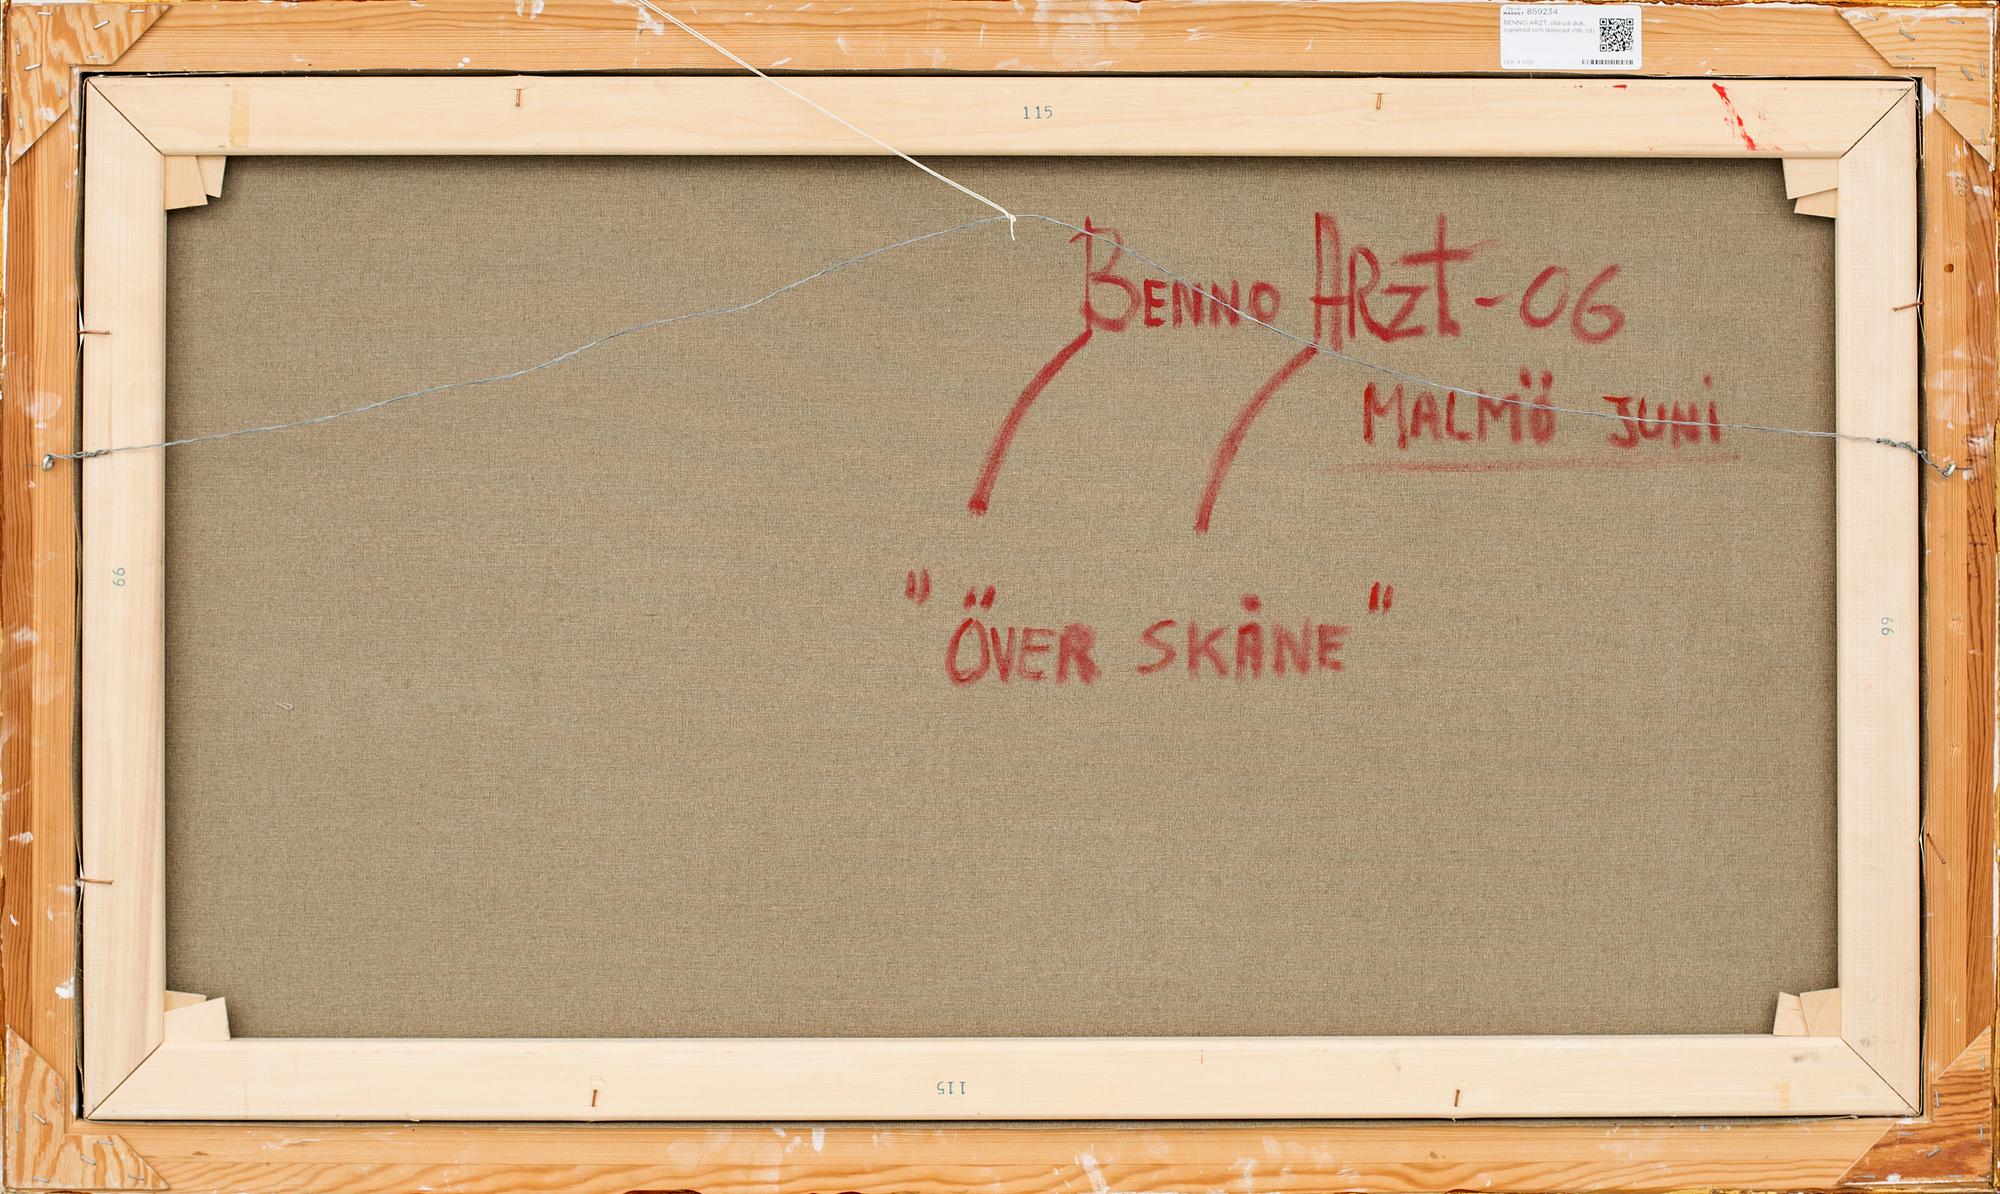 MARKET 859234
BENNO ARZT, olja på duk,
signerad och daterad -06. (d)
SEK 4 000
115
BENNO ARZT - 06
MALMÖ JUNI
66
66
"ÖVER SKÅNE"
115